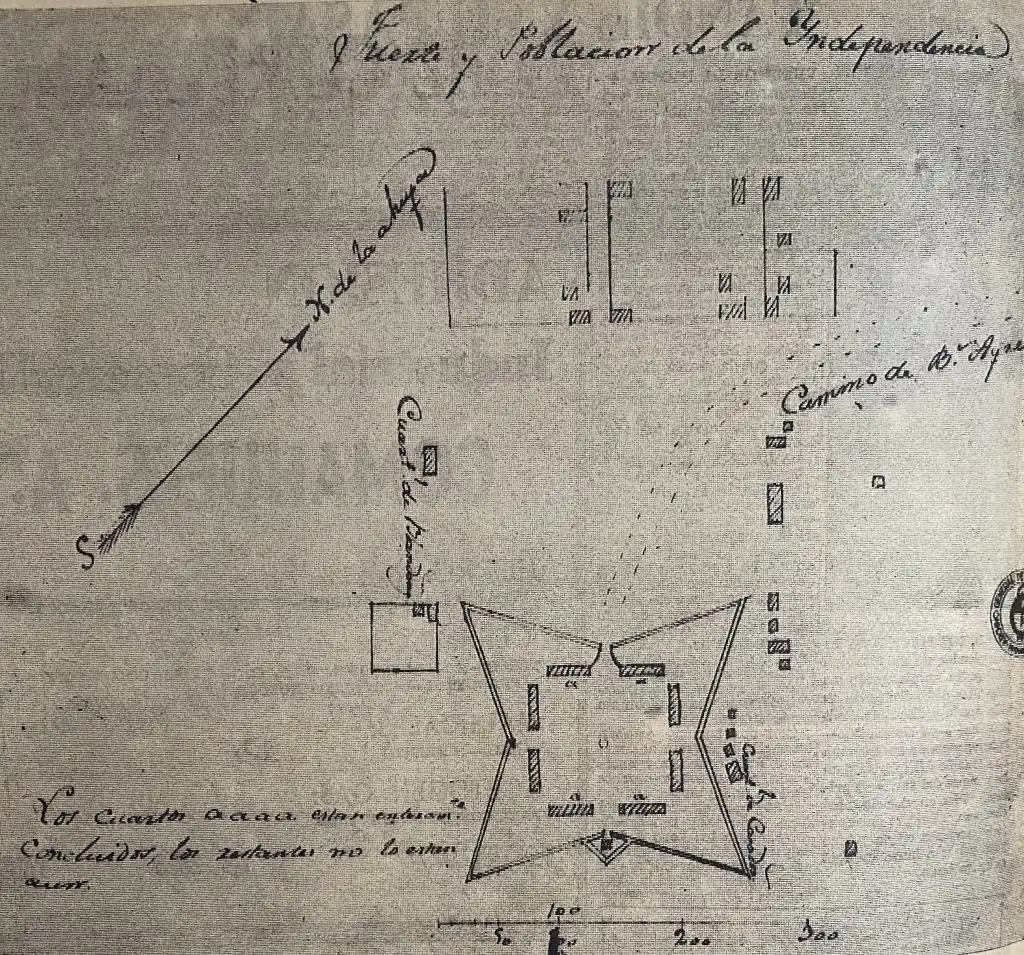 Fuerte y Poblacion de la Independencia.
N. de la ahuja
S
Camino de B.s Ayres
Cuart.l de
Los Cuartos a a a a. estan enteram.te
Concluidos, los restantes no lo estan
aun.
a
a
a
100
50
200
300